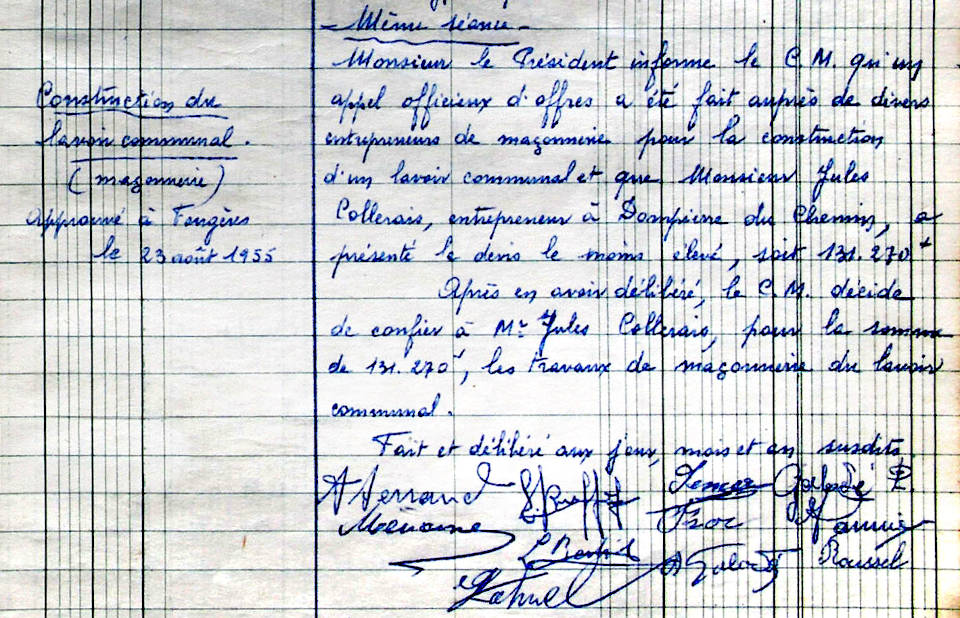 Même séance.
Monsieur le Président informe le C.M. qu'un
appel officieux d'offres a été fait auprès de divers
entrepreneurs de maçonnerie pour la construction
d'un lavoir communal et que Monsieur Jules
Collerais, entrepreneur à Dompierre du Chemin, a
présenté le devis le moins élevé, soit 131.270f
Après en avoir délibéré, le C.M. décide
de confier à Mr Jules Collerais, pour la somme
de 131.270f, les travaux de maçonnerie du lavoir
communal.
Fait et délibéré aux jour, mois et an susdits.
Construction du
lavoir communal.
(maçonnerie)
Approuvé à Fougères
le 23 août 1955
Roussel